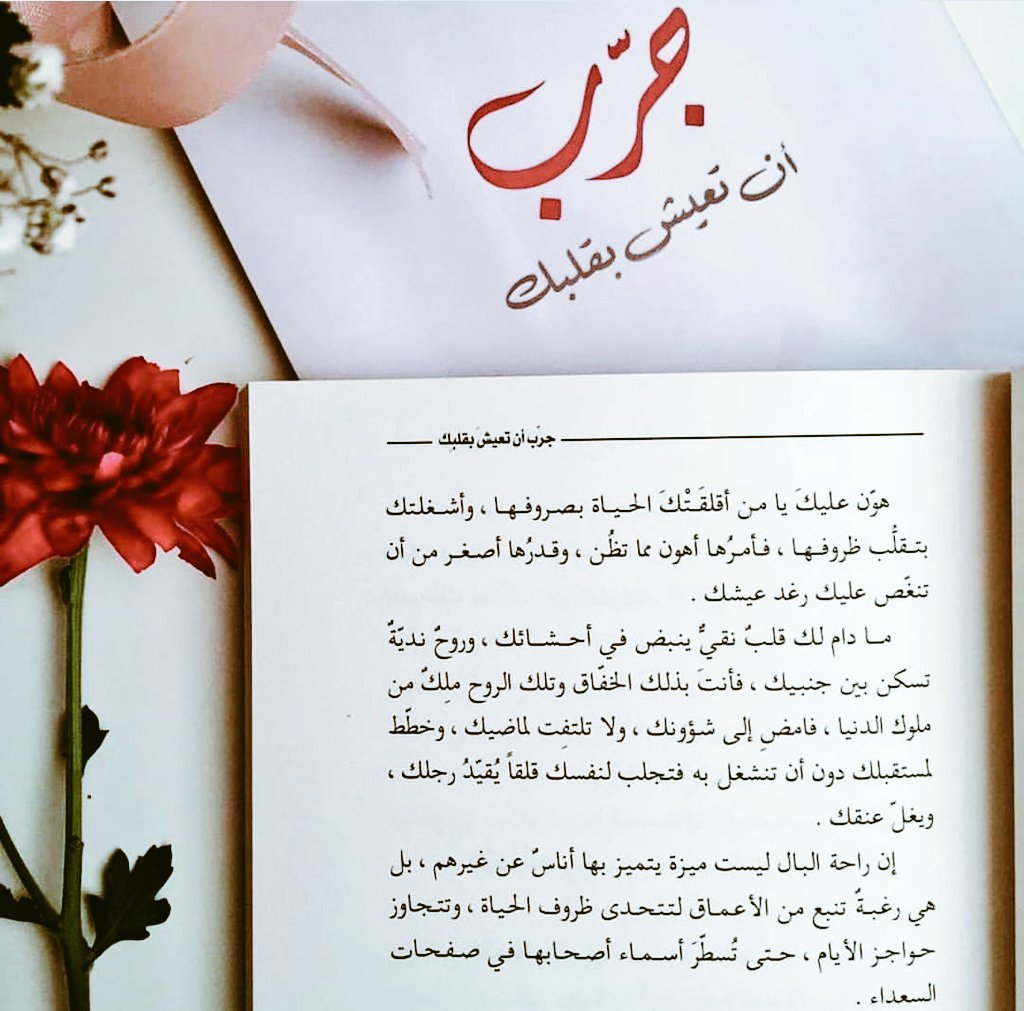 جرّب
أن تعيش بقلبك
جرّب أن تعيشَ بقلبِك
هوّن عليكَ يا من أقلقَتْكَ الحياة بصروفها ، وأشغلتك
بتقلُّب ظروفها ، فأمرُها أهون مما تظُن ، وقدرُها أصغر من أن
تنغّص عليك رغد عيشك .
ما دام لك قلبٌ نقيٌّ ينبض في أحشائك ، وروحٌ نديّةٌ
تسكن بين جنبيك ، فأنتَ بذلك الخفّاق وتلك الروح ملِكٌ من
ملوك الدنيا ، فامضِ إلى شؤونك ، ولا تلتفِت لماضيك ، وخطّط
لمستقبلك دون أن تنشغل به فتجلب لنفسك قلقاً يُقيّدُ رجلك ،
ويغلّ عنقك .
إن راحة البال ليست ميزة يتميز بها أناسٌ عن غيرهم ، بل
هي رغبةٌ تنبع من الأعماق لتتحدى ظروف الحياة ، وتتجاوز
حواجز الأيام ، حتى تُسطّرَ أسماء أصحابها في صفحات
السعداء .